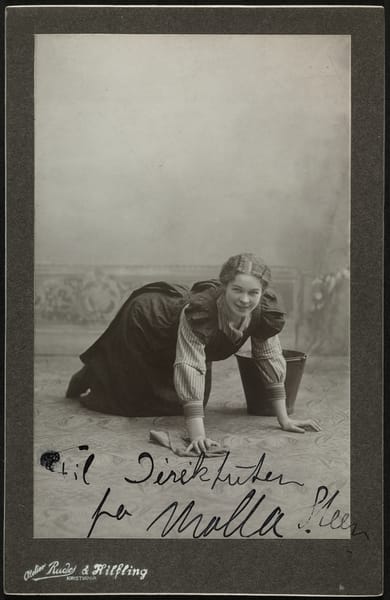 Til Direktøren
fra Molla Steen
Atelier Rude & Hilfling
KRISTIANIA